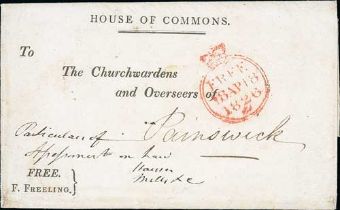 HOUSE OF COMMONS.
To
The Churchwardens
and Overseers of
FREE
18 AP 18
1826
Painswick
Particulars of
Assessment on how
Houses
Mills &c
FREE.
F. FREELING.